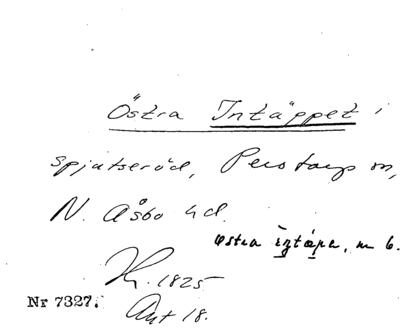 Östra Intäppet i
Spjutseröd, Perstorp sn,
N. Åsbo hd.
Östra ìntápe, m 6.
Kr. 1825
Nr 7327.
Ant 18.